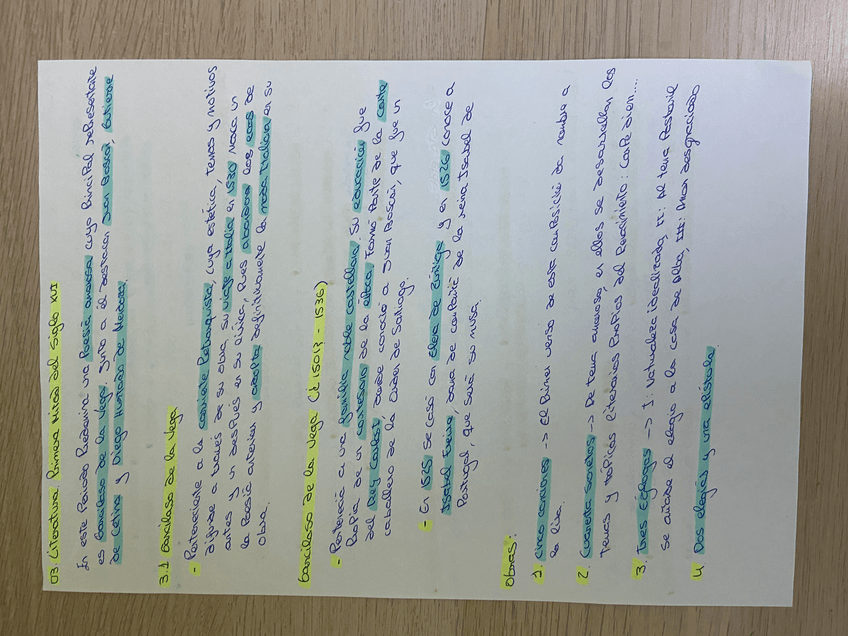 03. Literatura Primera Mitad del siglo XVI
En este Periodo Predomina una Poesía amorosa cuyo Principal representate
es Garcilaso de la Vega. Junto a él destacan Juan Boscán, Gutierre
de Cetina y Diego Hurtado de Mendoza.
3.1 Garcilaso de la Vega
- Perteneciente a la corriente Petrarquista, cuya estética, temas y motivos
difunde a traves de su obra, su viaje a Italia en 1530 marca un
antes y un despues en su lírica, Pues abandona los ecos de
la Poesía anterior y adapta definitivamente la moda Italiana en su
obra.
Garcilaso de la Vega (¿1501? - 1536)
- Perteneció a una familia noble castellana. Su educación fue
Propia de un cortesano de la época. Formó Parte de la corte
del Rey Carlos I, donde conoció a Juan Boscán, que fue un
caballero de la Orden de Santiago.
- En 1525 se casó con Elena de Zúñiga y en 1526 conoce a
Isabel Freire, dama de compañía de la reina Isabel de
Portugal, que será su musa.
Obras:
1. Cinco canciones -> El Primer verso de esta composición da nombre a
la lira.
2. Cuarenta sonetos -> De tema amoroso, en ellos se desarrollan los
temas y tópicos literarios Propios del Renacimiento: Carpe diem....
3. Tres Églogas -> I: Naturaleza idealizada, II: Al tema Pastoril
se añade el elogio a la casa de Alba, III: Amor desgraciado
4. Dos elegías y una epístola.